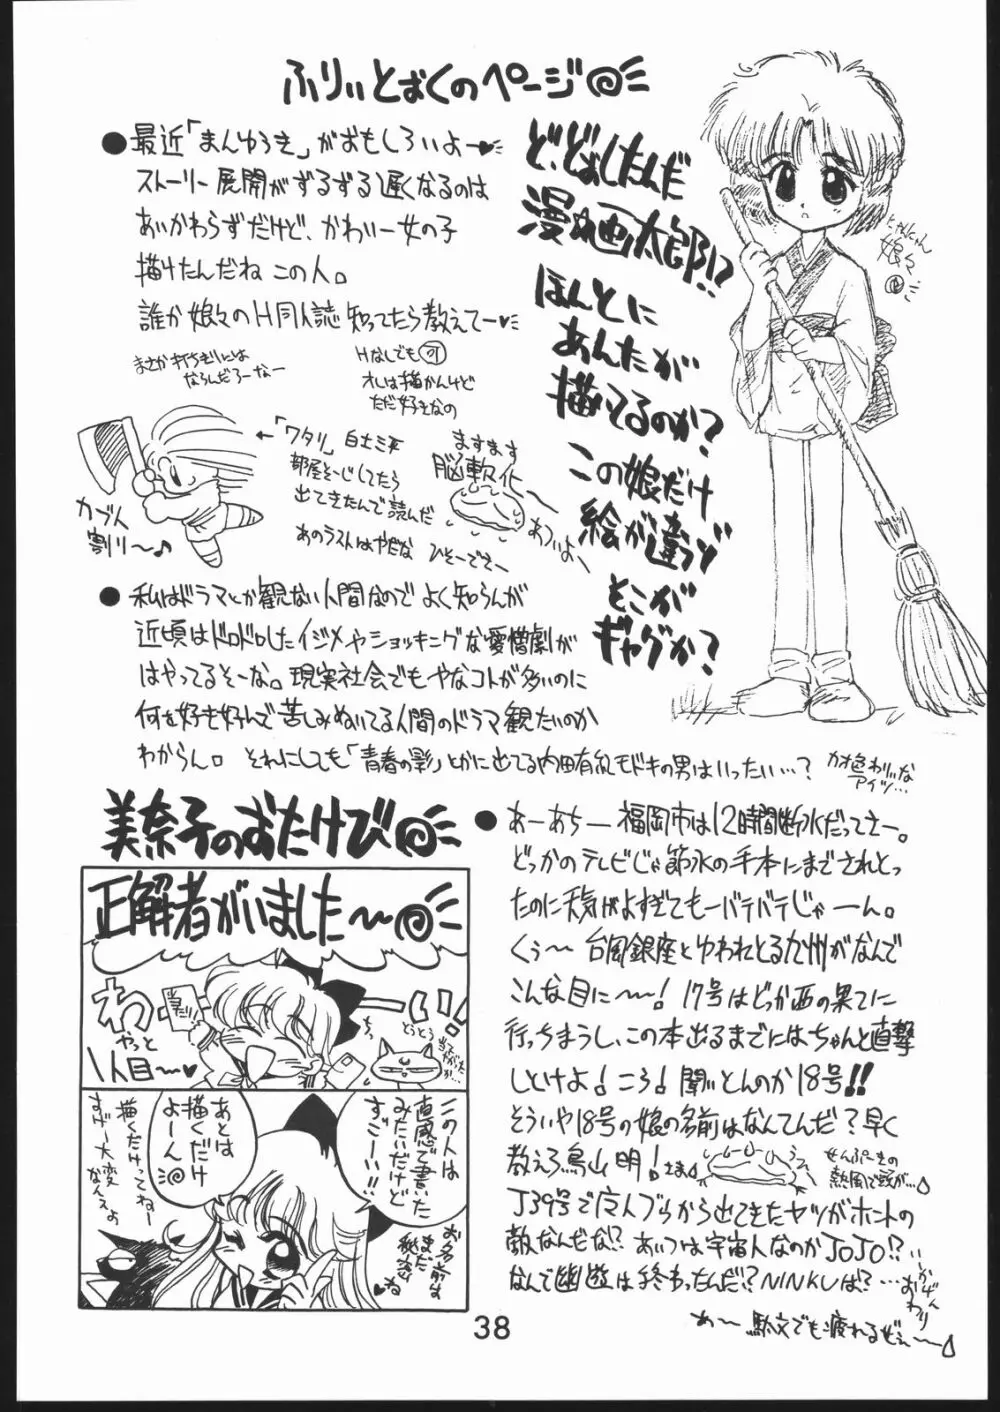 ふりぃとぉくのページ
●最近「まんゆうき」がおもしろいよー♥
ストーリー展開がずるずる遅くなるのは
あいかわらずだけど、かわいー女の子
描けたんだねこの人。
誰か娘々のH同人誌知ってたら教えてー♥
まさか打ちきりには
ならんだろーなー
Hなしでも可
オレは描かんけど
ただ好きなの
ど、どぉしたんだ
漫☆画太郎!?
ほんとに
あんたが
描いてるのか?
この娘だけ
絵が違うぞ
そこが
ギャグか?
にゃんにゃん
娘々
←「ワタリ」白土三平
部屋そーじしてたら
出てきたんで読んだ
あのラストはやだな
ひそーでさー
カブト
割り〜♪
ますます
脳軟化〜
あついよ〜
●私はドラマとか観ない人間なのでよく知らんが
近頃はドロドロしたイジメやショッキングな愛憎劇が
はやってるそーな。現実社会でもやなコトが多いのに
何を好き好んで苦しみぬいてる人間のドラマ観たいのか
わからん。それにしても「青春の影」とかに出てる内田有紀モドキの男はいったい…?
カオ色わりぃな
アイツ…
美奈子のおたけび
正解者がいました〜
わーい!
当たり!
やっと
1人目〜♥
とうとう
この人は
直感で書いた
みたいだけど
すごーい!!
お名前は
まだ
秘密
あとは
描くだけ
よーん
描くだけってねー
すげー大変
なんえよ
●あーあちー福岡市は12時間断水だってさー。
どっかのテレビじゃ節水の手本にまでされとっ
たのに天気がよすぎてもーバテバテじゃーん。
くぅ〜台風銀座とゆわれとる九州がなんで
こんな目に〜!17号はどっか西の果てに
行っちまうし、この本出るまでにはちゃんと直撃
しといけよ!ころ!聞いとんのか18号!!
そういや18号の娘の名前はなんてんだ?早く
教えろ鳥山明!さま
せんぷーきの
熱風で頭が…
J39号で広人ブウから出てきたヤツがホントの
敵なんだな!?あいつは宇宙人なのかJOJO!?
なんで幽遊は終わったんだ!?NINKUは?…
いいかげん
おわり
あ〜駄文でも疲れるぜぇ〜
38